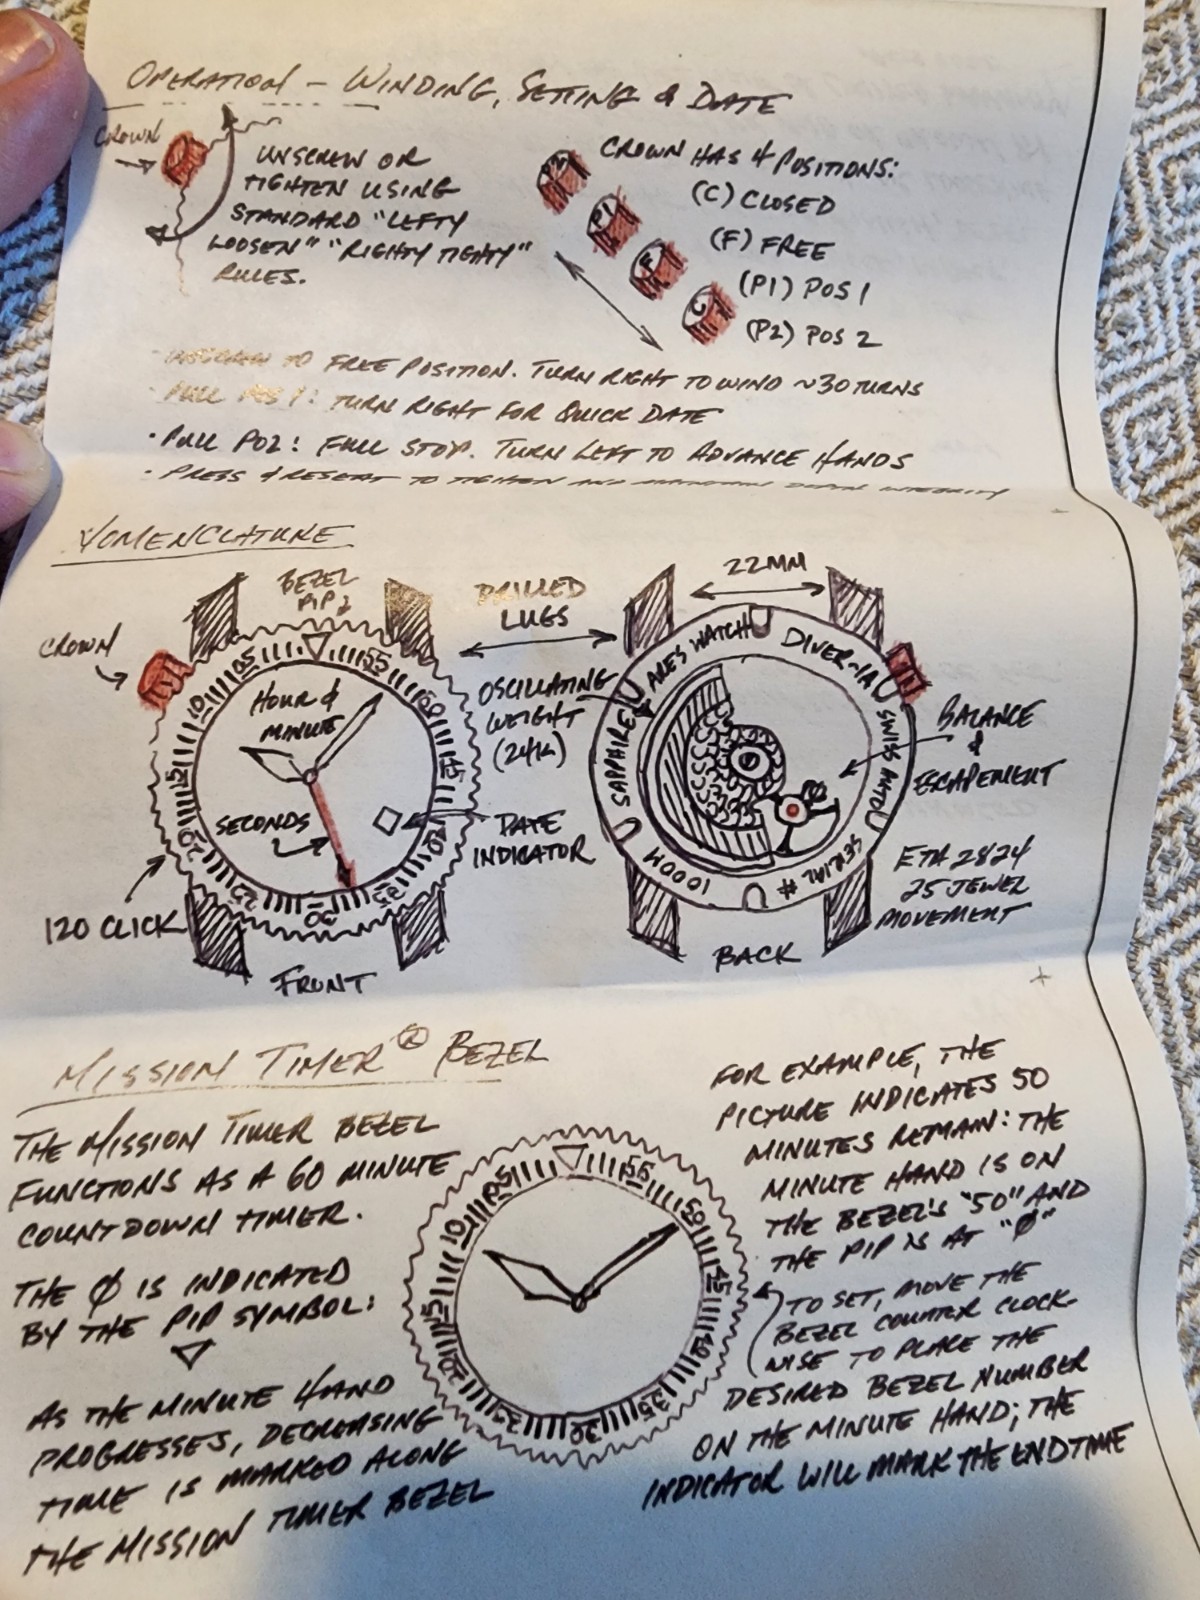 OPERATION - WINDING, SETTING & DATE
CROWN
UNSCREW OR
TIGHTEN USING
STANDARD "LEFTY
LOOSEN" "RIGHTY TIGHTY"
RULES.
P2
P1
F
C
CROWN HAS 4 POSITIONS:
(C) CLOSED
(F) FREE
(P1) POS 1
(P2) POS 2
· UNSCREW TO FREE POSITION. TURN RIGHT TO WIND ~30 TURNS
· PULL POS 1: TURN RIGHT FOR QUICK DATE
· PULL PO2: FULL STOP. TURN LEFT TO ADVANCE HANDS
· PRESS & RESEAT TO TIGHTEN AND MAINTAIN DEPTH INTEGRITY
NOMENCLATURE
BEZEL
PIP
CROWN
HOUR &
MINUTE
SECONDS
05
10
15
20
25
30
35
40
45
50
55
120 CLICK
FRONT
DRILLED
LUGS
22MM
OSCILLATING
WEIGHT
(24K)
DATE
INDICATOR
ARES WATCH
DIVER-1A
SWISS AUTO
SERIAL #
100M
SAPPHIRE
BALANCE
&
ESCAPEMENT
ETA 2824
25 JEWEL
MOVEMENT
BACK
MISSION TIMER® BEZEL
THE MISSION TIMER BEZEL
FUNCTIONS AS A 60 MINUTE
COUNTDOWN TIMER.
THE Ø IS INDICATED
BY THE PIP SYMBOL:
▽
AS THE MINUTE HAND
PROGRESSES, DECREASING
TIME IS MARKED ALONG
THE MISSION TIMER BEZEL
05
10
15
20
25
30
35
40
45
50
55
FOR EXAMPLE, THE
PICTURE INDICATES 50
MINUTES REMAIN: THE
MINUTE HAND IS ON
THE BEZEL'S "50" AND
THE PIP IS AT "Ø"
TO SET, MOVE THE
BEZEL COUNTER CLOCK-
WISE TO PLACE THE
DESIRED BEZEL NUMBER
ON THE MINUTE HAND; THE
INDICATOR WILL MARK THE END TIME